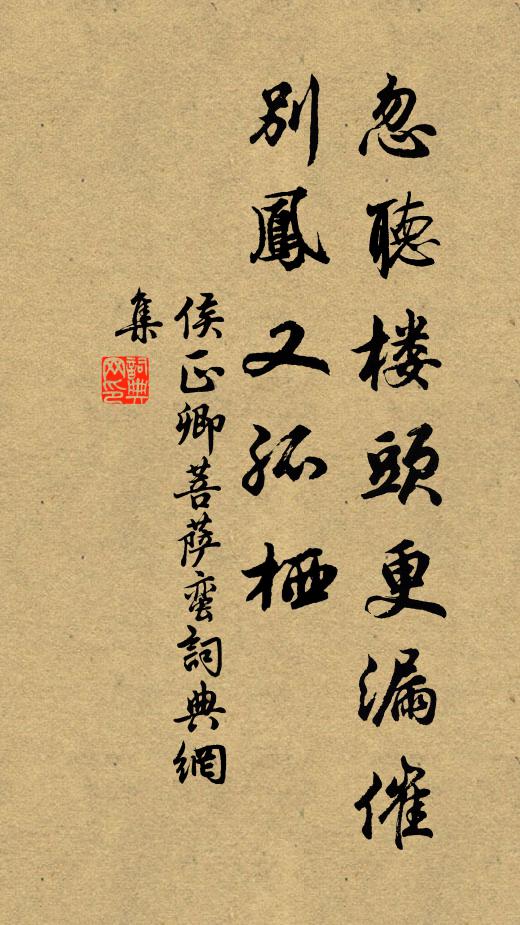 忽聽楼頭更漏催
別鳳又孤栖
侯正卿菩萨蛮詞典網
集
詞典
网印